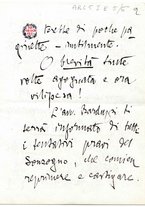 ARCI E 5/5 2
Anche di poche pa
gnette – inutilmente.
O brevità tante
volte agognata e ora
vilipesa!
L'avv. Barduzzi ti
terrà informato di tutti
i tentativi presi dal
Sonzogno, che convien
reprimere e castigare.